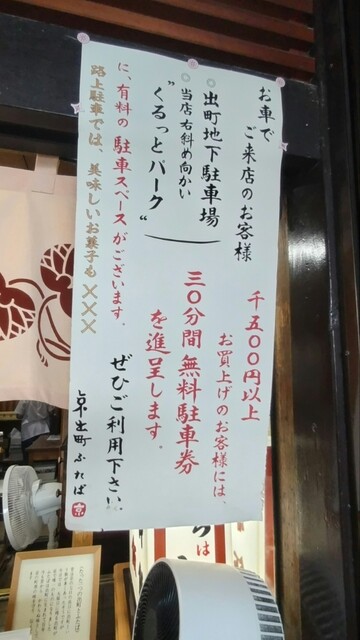 お車で
ご来店のお客様
○出町地下駐車場
○当店右斜め向かい
"くるっとパーク"
に、有料の駐車スペースがございます。
路上駐車では、美味しいお菓子も×××
千五〇〇円以上
お買上げのお客様には、
三〇分間 無料駐車券
を進呈します。
ぜひご利用下さい。
京出町ふたば
京
は